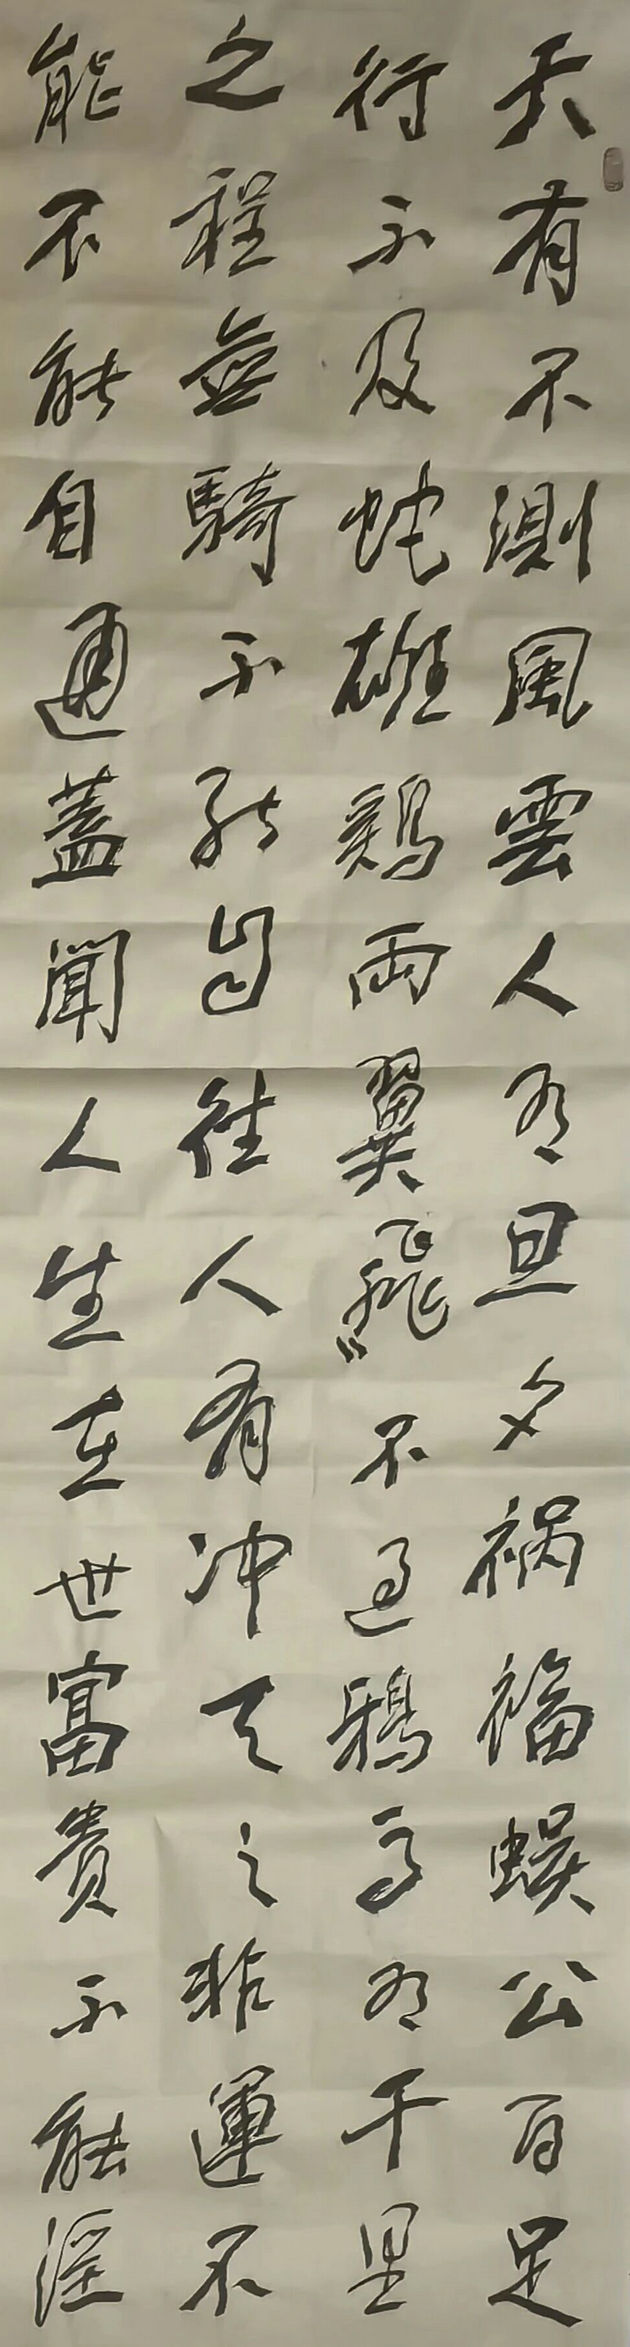 天有不測風雲人有旦夕祸福蜈公百足
行不及蛇雄鷄兩翼飛不過鴉馬有千里
之程無騎不能自往人有冲天之非運不
能不能自通蓋聞人生在世富貴不能淫